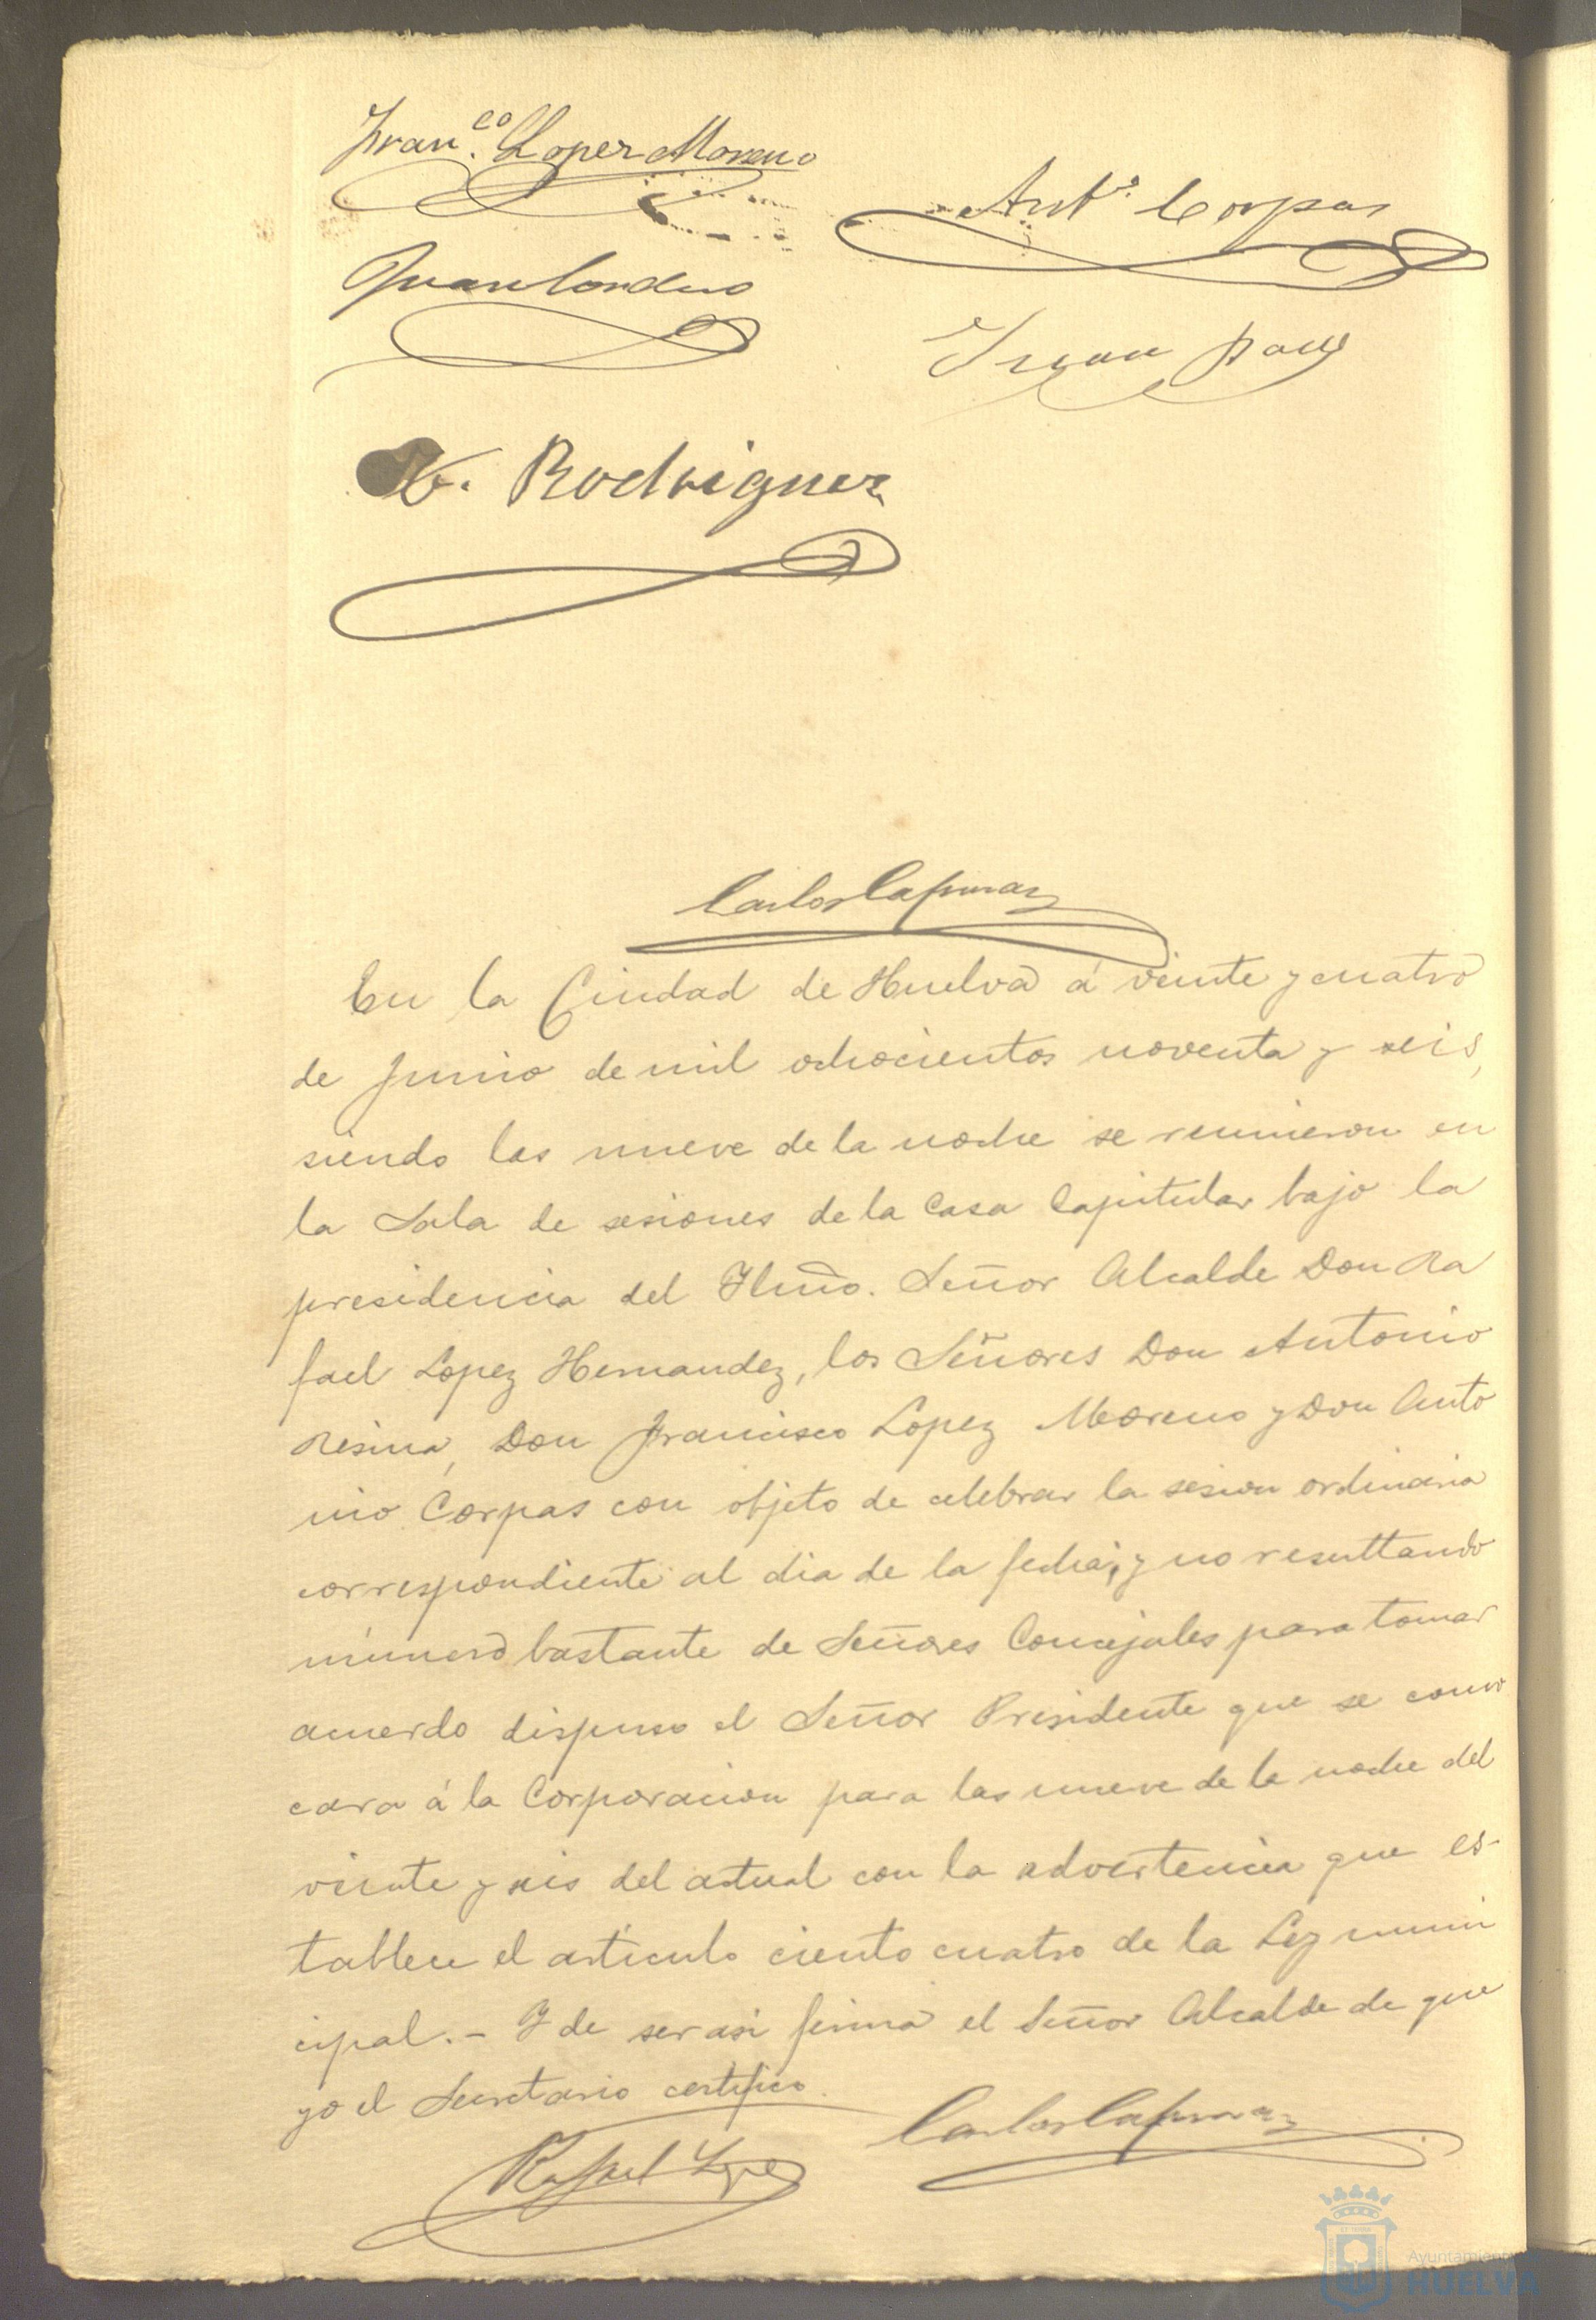 Fran.co Lopez Moreno
Ant.o Corpas
Juan Cordero
Rodriguez
Carlos
En la Ciudad de Huelva á veinte y cuatro
de Junio de mil ochocientos noventa y seis,
siendo las nueve de la noche se reunieron en
la Sala de sesiones de la Casa Capitular bajo la
presidencia del Ilmo. Señor Alcalde Don Ra
fael Lopez Hernandez, los Señores Don Antonio
Resina, Don Francisco Lopez Moreno y Don Anto
nio Corpas con objeto de celebrar la sesion ordinaria
correspondiente al dia de la fecha; y no resultando
número bastante de Señores Concejales para tomar
acuerdo dispuso el Señor Presidente que se convo
cara á la Corporacion para las nueve de la noche del
veinte y seis del actual con la advertencia que es-
tablece el artículo ciento cuatro de la Ley muni
cipal.- Y de ser asi firma el Señor Alcalde de que
yo el Secretario certifico.
Rafael Lopez
Carlos
Ayuntamiento
HUELVA